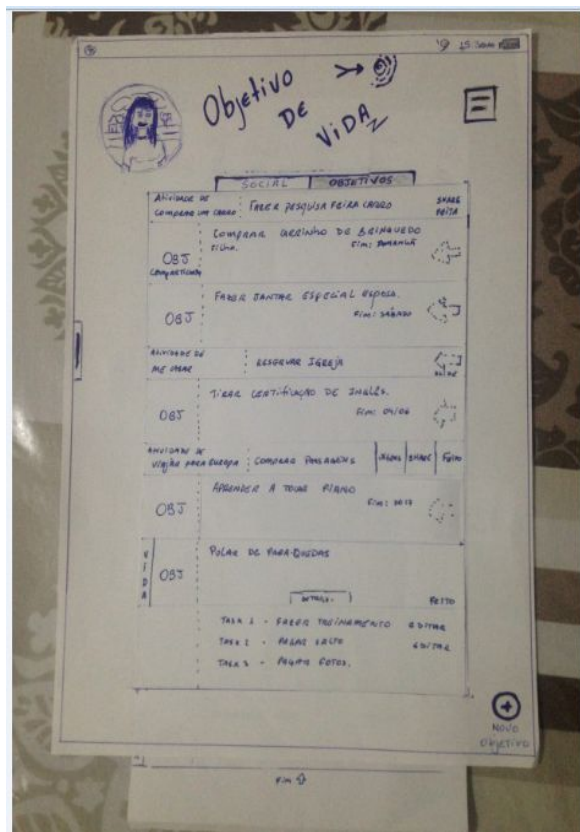 Objetivo
DE
ViDA
SOCIAL OBJETIVOS
Atividade de
comprar um carro FAZER PESQUISA FEIRA CARRO SHARE
FEITA
COMPRAR CARRINHO DE BRINQUEDO
OBJ FILHA. Fim: AMANHÃ
Compartilhado
FAZER JANTAR ESPECIAL ESPOSA.
OBJ Fim: SÁBADO
ATIVIDADE DE
ME CASAR RESERVAR IGREJA
TIRAR CERTIFICAÇÃO DE INGLÊS.
OBJ Fim: 04/06
ATIVIDADE DE
VIAJAR PARA EUROPA COMPRAR PASSAGENS SHARE FEITO
APRENDER A TOCAR PIANO
OBJ Fim: 2017
PULAR DE PARA-QUEDAS
VIDA OBJ
FEITO
TASK 1 - FAZER TREINAMENTO EDITAR
TASK 2 - PAGAR SALTO EDITAR
TASK 3 - PAGAR FOTOS.
NOVO
Objetivo
Fim